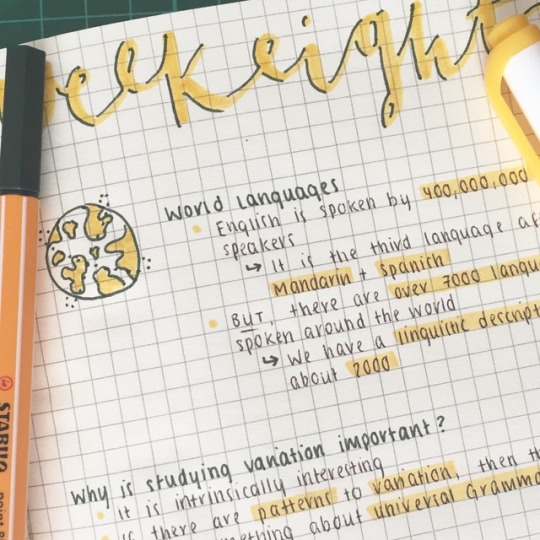 week eight
World Languages
English is spoken by 400,000,000
speakers
↳ It is the third language
Mandarin + Spanish
BUT, there are over 7000
spoken around the world
↳ We have a linguistic
about 2000
Why is studying variation important?
It is intrinsically interesting
If there are patterns to variation, then
about universal
STABILO
point